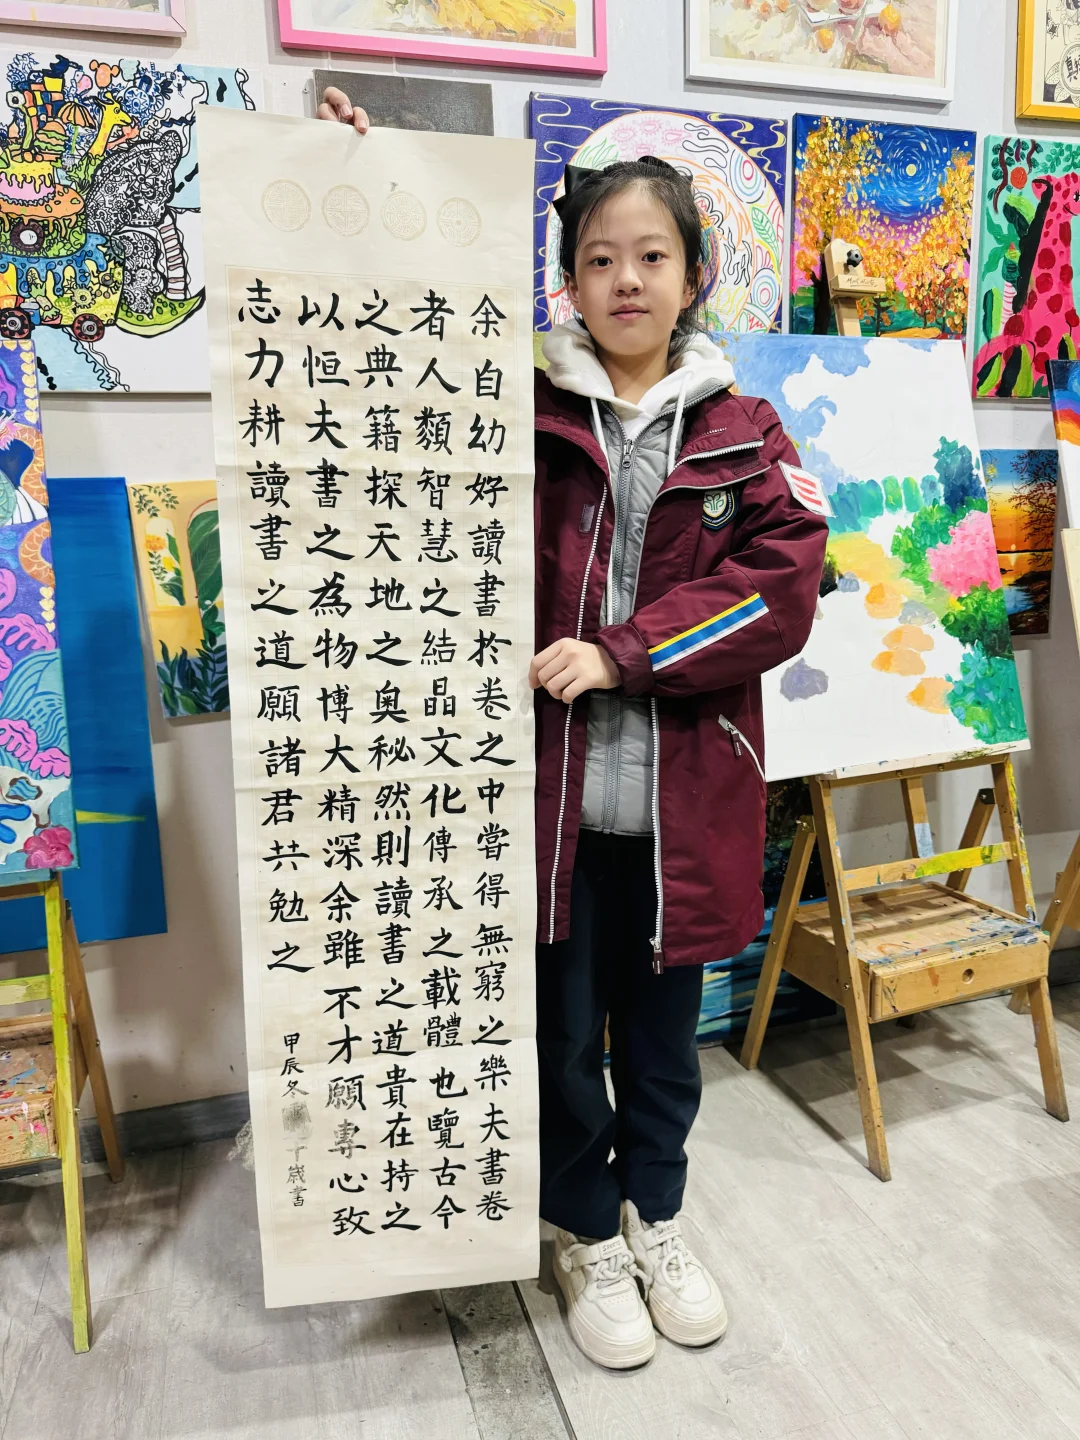 余自幼好讀書於卷之中嘗得無窮之樂夫書卷
者人類智慧之結晶文化傳承之載體也覽古今
之典籍探天地之奧秘然則讀書之道貴在持之
以恒夫書之為物博大精深余雖不才願專心致
志力耕讀書之道願諸君共勉之
甲辰冬
十歲書